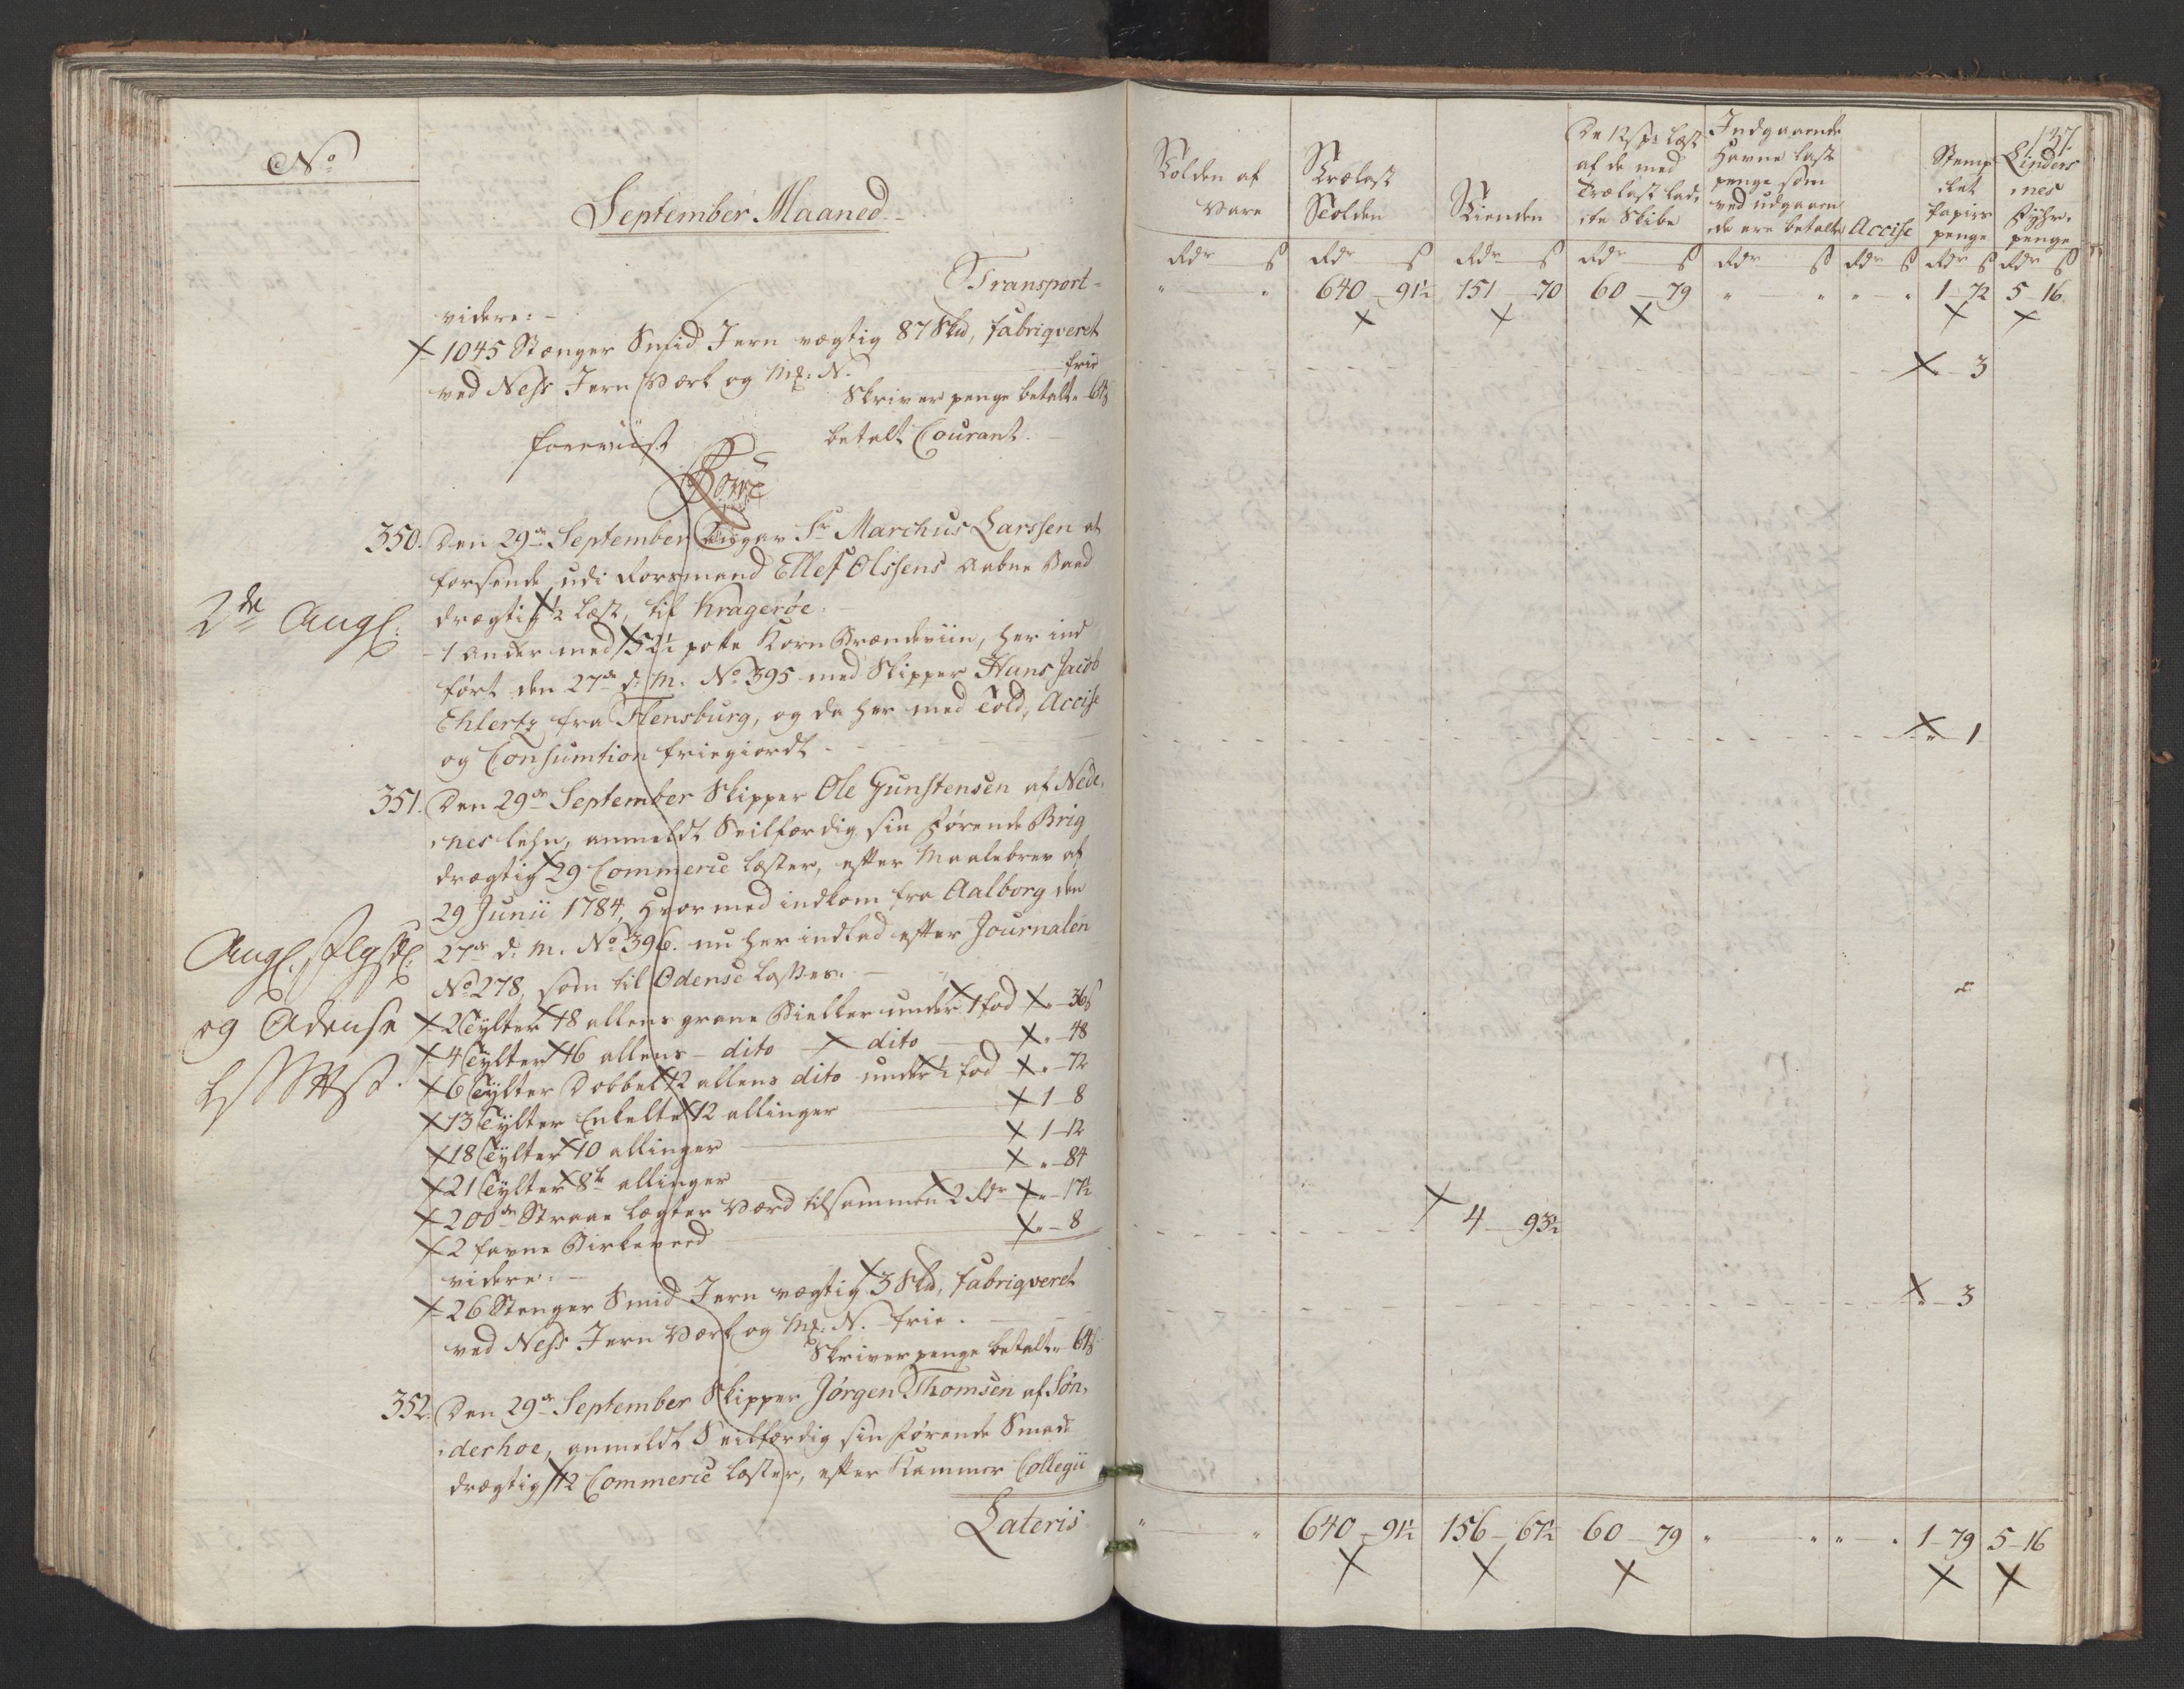 No
September Maaned
Transport
videre:
1045 Stænger Smid Jern vægtig 87 Skd, fabriqveret
ved Ness Jern Værk og Mk: N. frie
Skriver penge betalt „ 64 s
foreviist betalt Courant.
350. Den 29de September angav Sr Marchus Larssen at
forsende udi Rorsmand Ellef Olssens aabne Baad
2de Angl.
drægtig ½ Læst, til Kragerøe.
1 Anker med 32½ potte Korn Brændeviin, her ind
ført den 27de d: M. No 395 med Skipper Hans Jacob
Ehlertz fra Flensburg, og da her med Told, Accise
og Consumtion friegiordt
351. Den 29de September Skipper Ole Gunstensen af Nede,
nes lehn, anmeldt Seilfærdig sin førende Brig
drægtig 29 Commerce Læster, efter Maalebrev af
29 Junii 1784, hvormed indkom fra Aalborg den
27de d: M. No 396. nu her indlad efter Journalen
No 278, som til Odense Losses.
og Odense
2 Tylter 18 allens grane Bielker under 1 fod „ 36 s
4 Tylter 16 allens dito dito „ 48
6 Tylter Dobbelt 12 allens dito under ½ fod „ 72
13 Tylter Enkelte 12 allinger 1 - 8
18 Tylter 10 allinger 1 - 12
21 Tylter 8te allinger „ 84
200de Straae lægter Værd tilsammen 2 Rdr „ 17½
2 favne Birkeveed „ 8
videre:
26 Stenger Smid Jern vægtig 3 Skd, fabriqveret
ved Ness Jern Værk og Mk: N. frie.
Skriver penge betalt „ 64 s
352. Den 29de September Skipper Jørgen Thomsen af Søn,
derhoe, anmeldt Seilfærdig sin førende Smak
drægtig 12 Commerce Læster, efter Kammer Collegii
Lateris
137.
Tolden af Vare
Trælast Tolden
Tienden
De 12 s pr Læst af de med Trælast lad, te Skibe
Indgaaende Havne laste penge som ved udgaaen de ere betalte
Accise
Stemp let papirs penge
Linders nes Fyhr penge
Rdr s Rdr s Rdr s Rdr s Rdr s Rdr s Rdr s Rdr s
„ „ 640 - 91½ 151 - 70 60 - 79 „ „ „ „ 1 - 72 5 - 16
„ 3
„ 1
4 - 93½
„ 3
„ „ 640 - 91½ 156 - 67½ 60 - 79 „ „ „ „ 1 - 79 5 - 16